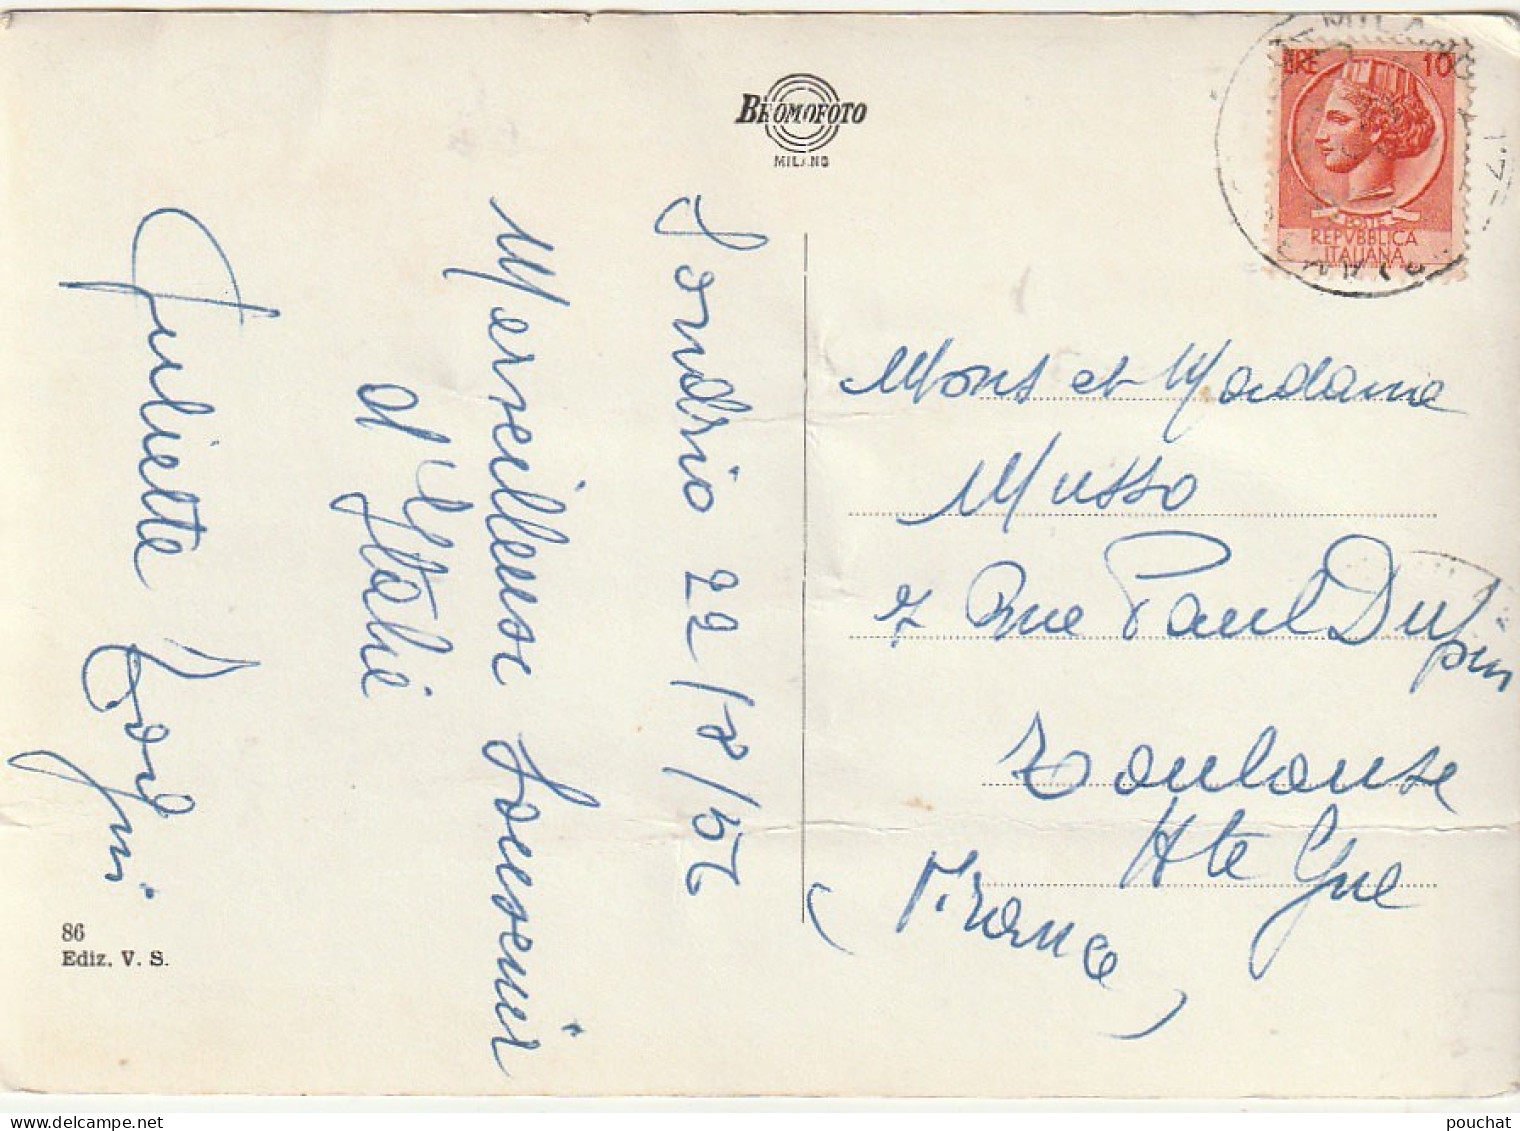 BROMOFOTO
MILANO
Sondrio 22/8/56
Merveilleuse Souvenir
d'Ytalie
Juliette
86
Ediz. V. S.
LIRE 10
POSTE
REPVBBLICA
ITALIANA
MILANO
Mons et Madame
Musso
7 Rue Paul Dupin
Toulouse
Hte Gne
(France)
pouchat